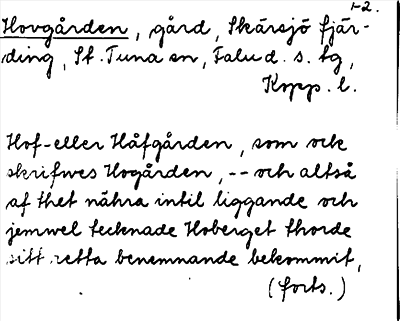 1-2.
Hovgården, gård, Skärsjö fjär-
ding, St. Tuna sn, Falu d. s. tg,
Kopp. l.
Hof- eller Håfgården, som ock
skrifwes Hogården, -- och altså
af thet nähra intil liggande och
jemwel tecknade Hoberget thorde
sitt retta benemnande bekommit,
(forts.)